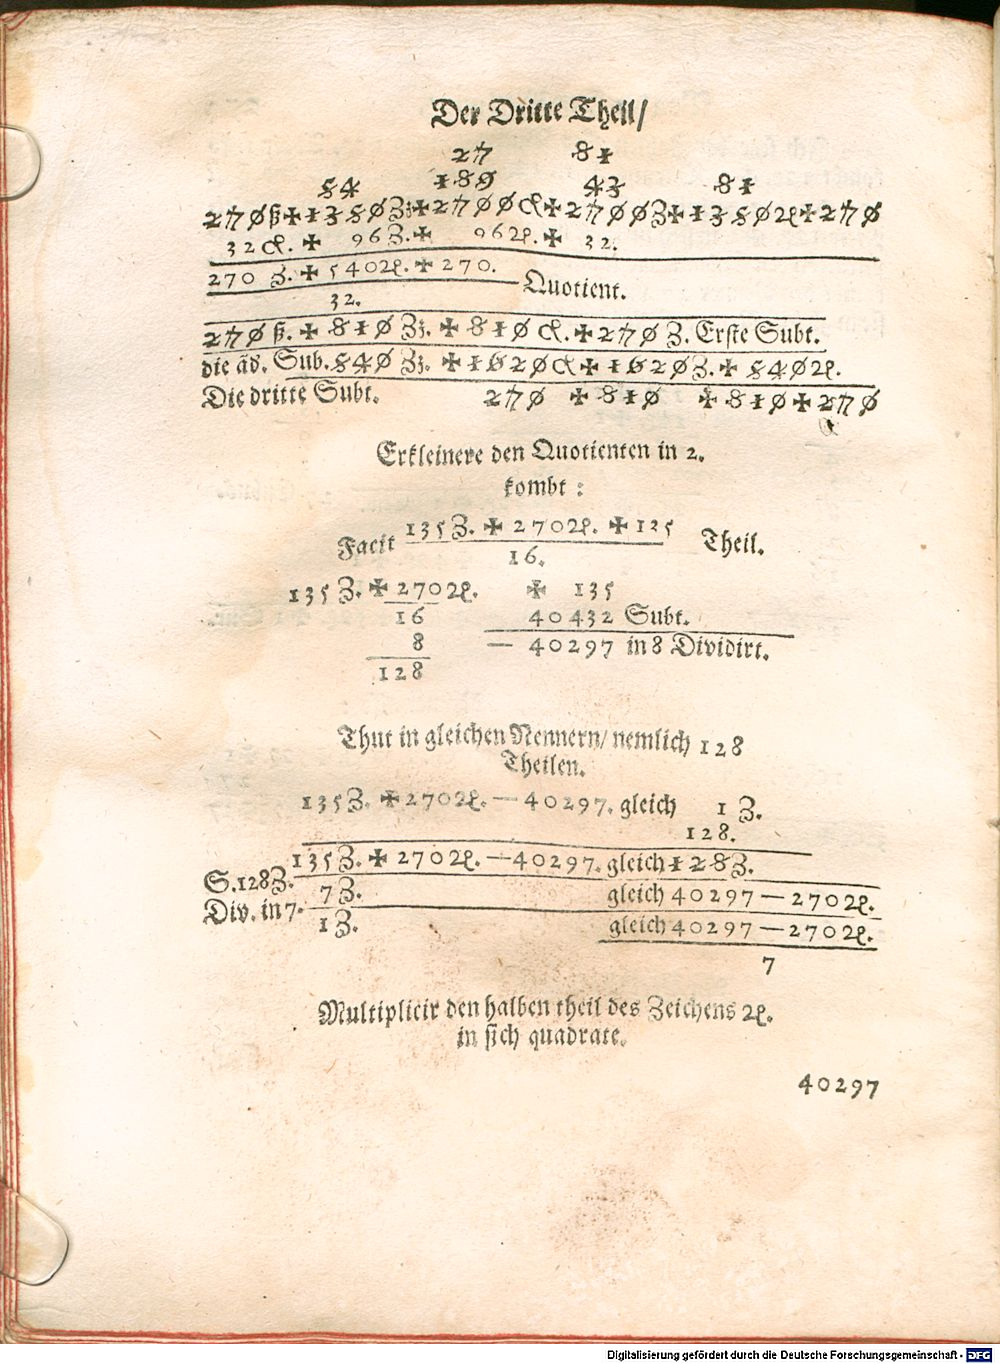 Der Dritte Theil/
27 81
54 189 43 81
270ß✠1350ʒʒ✠2700ꝶ✠2700ʒ✠1350ꝛ✠270
32ꝶ. ✠ 96ʒ.✠ 96ꝛ.✠ 32.
270 ʒ.✠540ꝛ.✠270. Quotient.
32.
270ß.✠810ʒʒ.✠810ꝶ.✠270ʒ. Erste Subt.
die ād. Sub.540ʒʒ.✠1620ꝶ✠1620ʒ.✠540ꝛ.
Die dritte Subt. 270 ✠810 ✠810✠270
Erkleinere den Quotienten in 2.
kombt :
Facit 135ʒ.✠270ꝛ.✠125 Theil.
16.
135ʒ.✠270ꝛ. ✠ 135
16 40432 Subt.
8 — 40297 in 8 Dividirt.
128
Thut in gleichen Nennern/ nemlich 128
Theilen.
135ʒ.✠270ꝛ.—40297. gleich 1ʒ.
128.
135ʒ.✠270ꝛ.—40297. gleich 128ʒ.
S.128ʒ. 7ʒ. gleich 40297—270ꝛ.
Div. in 7. 1ʒ. gleich 40297—270ꝛ.
7
Multiplicir den halben theil des Zeichens ꝛ.
in sich quadrate.
40297
Digitalisierung gefördert durch die Deutsche Forschungsgemeinschaft - DFG